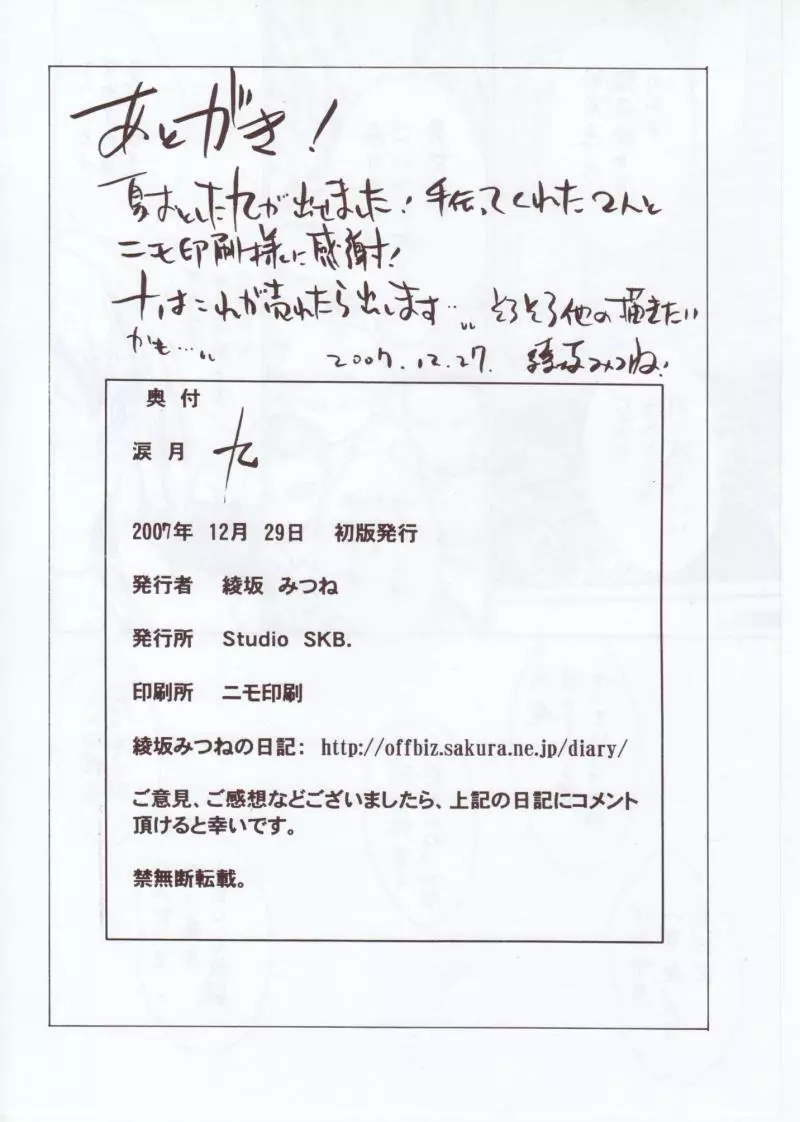 あとがき!
夏おとした九が出せました! 手伝ってくれた2人と
ニモ印刷様に感謝!
十はこれが売れたら出します…。 そろそろ他の描きたい
かも…。 2007.12.27. 綾坂みつね!
奥付
涙月 九
2007年 12月 29日 初版発行
発行者 綾坂 みつね
発行所 Studio SKB.
印刷所 ニモ印刷
綾坂みつねの日記: http://offbiz.sakura.ne.jp/diary/
ご意見、ご感想などございましたら、上記の日記にコメント
頂けると幸いです。
禁無断転載。